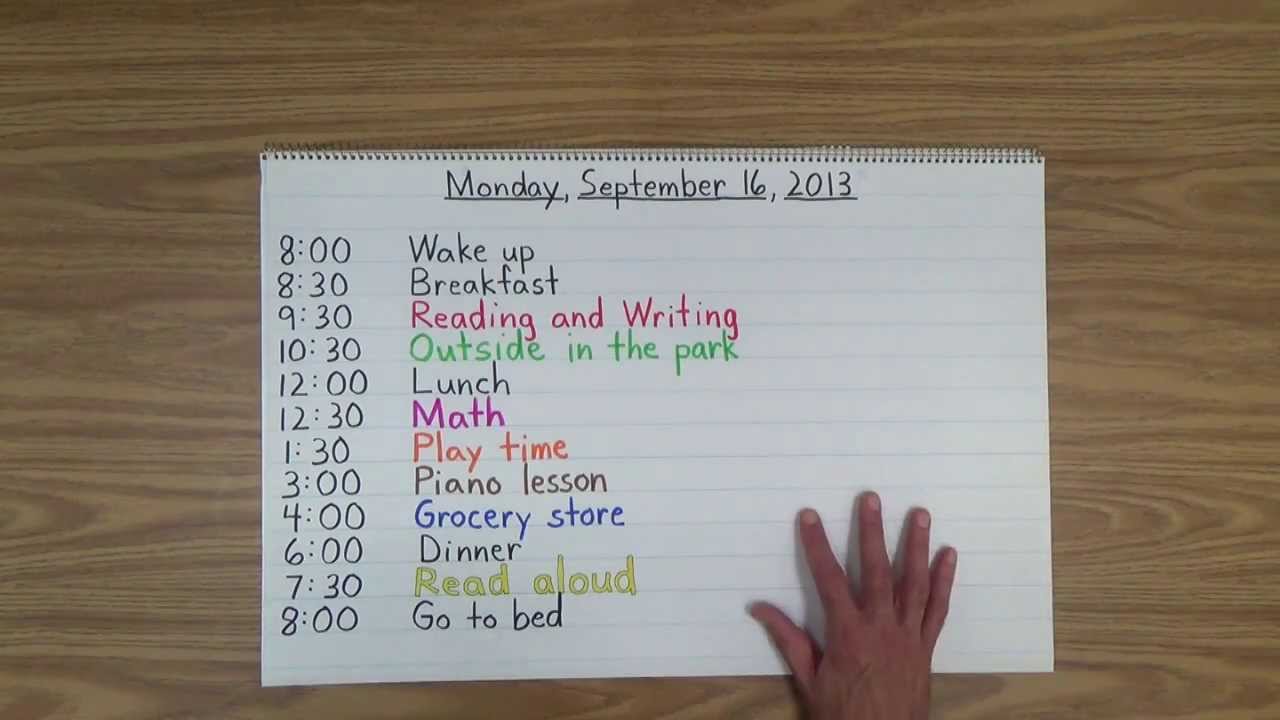 Monday, September 16, 2013
8:00 Wake up
8:30 Breakfast
9:30 Reading and Writing
10:30 Outside in the park
12:00 Lunch
12:30 Math
1:30 Play time
3:00 Piano lesson
4:00 Grocery store
6:00 Dinner
7:30 Read aloud
8:00 Go to bed